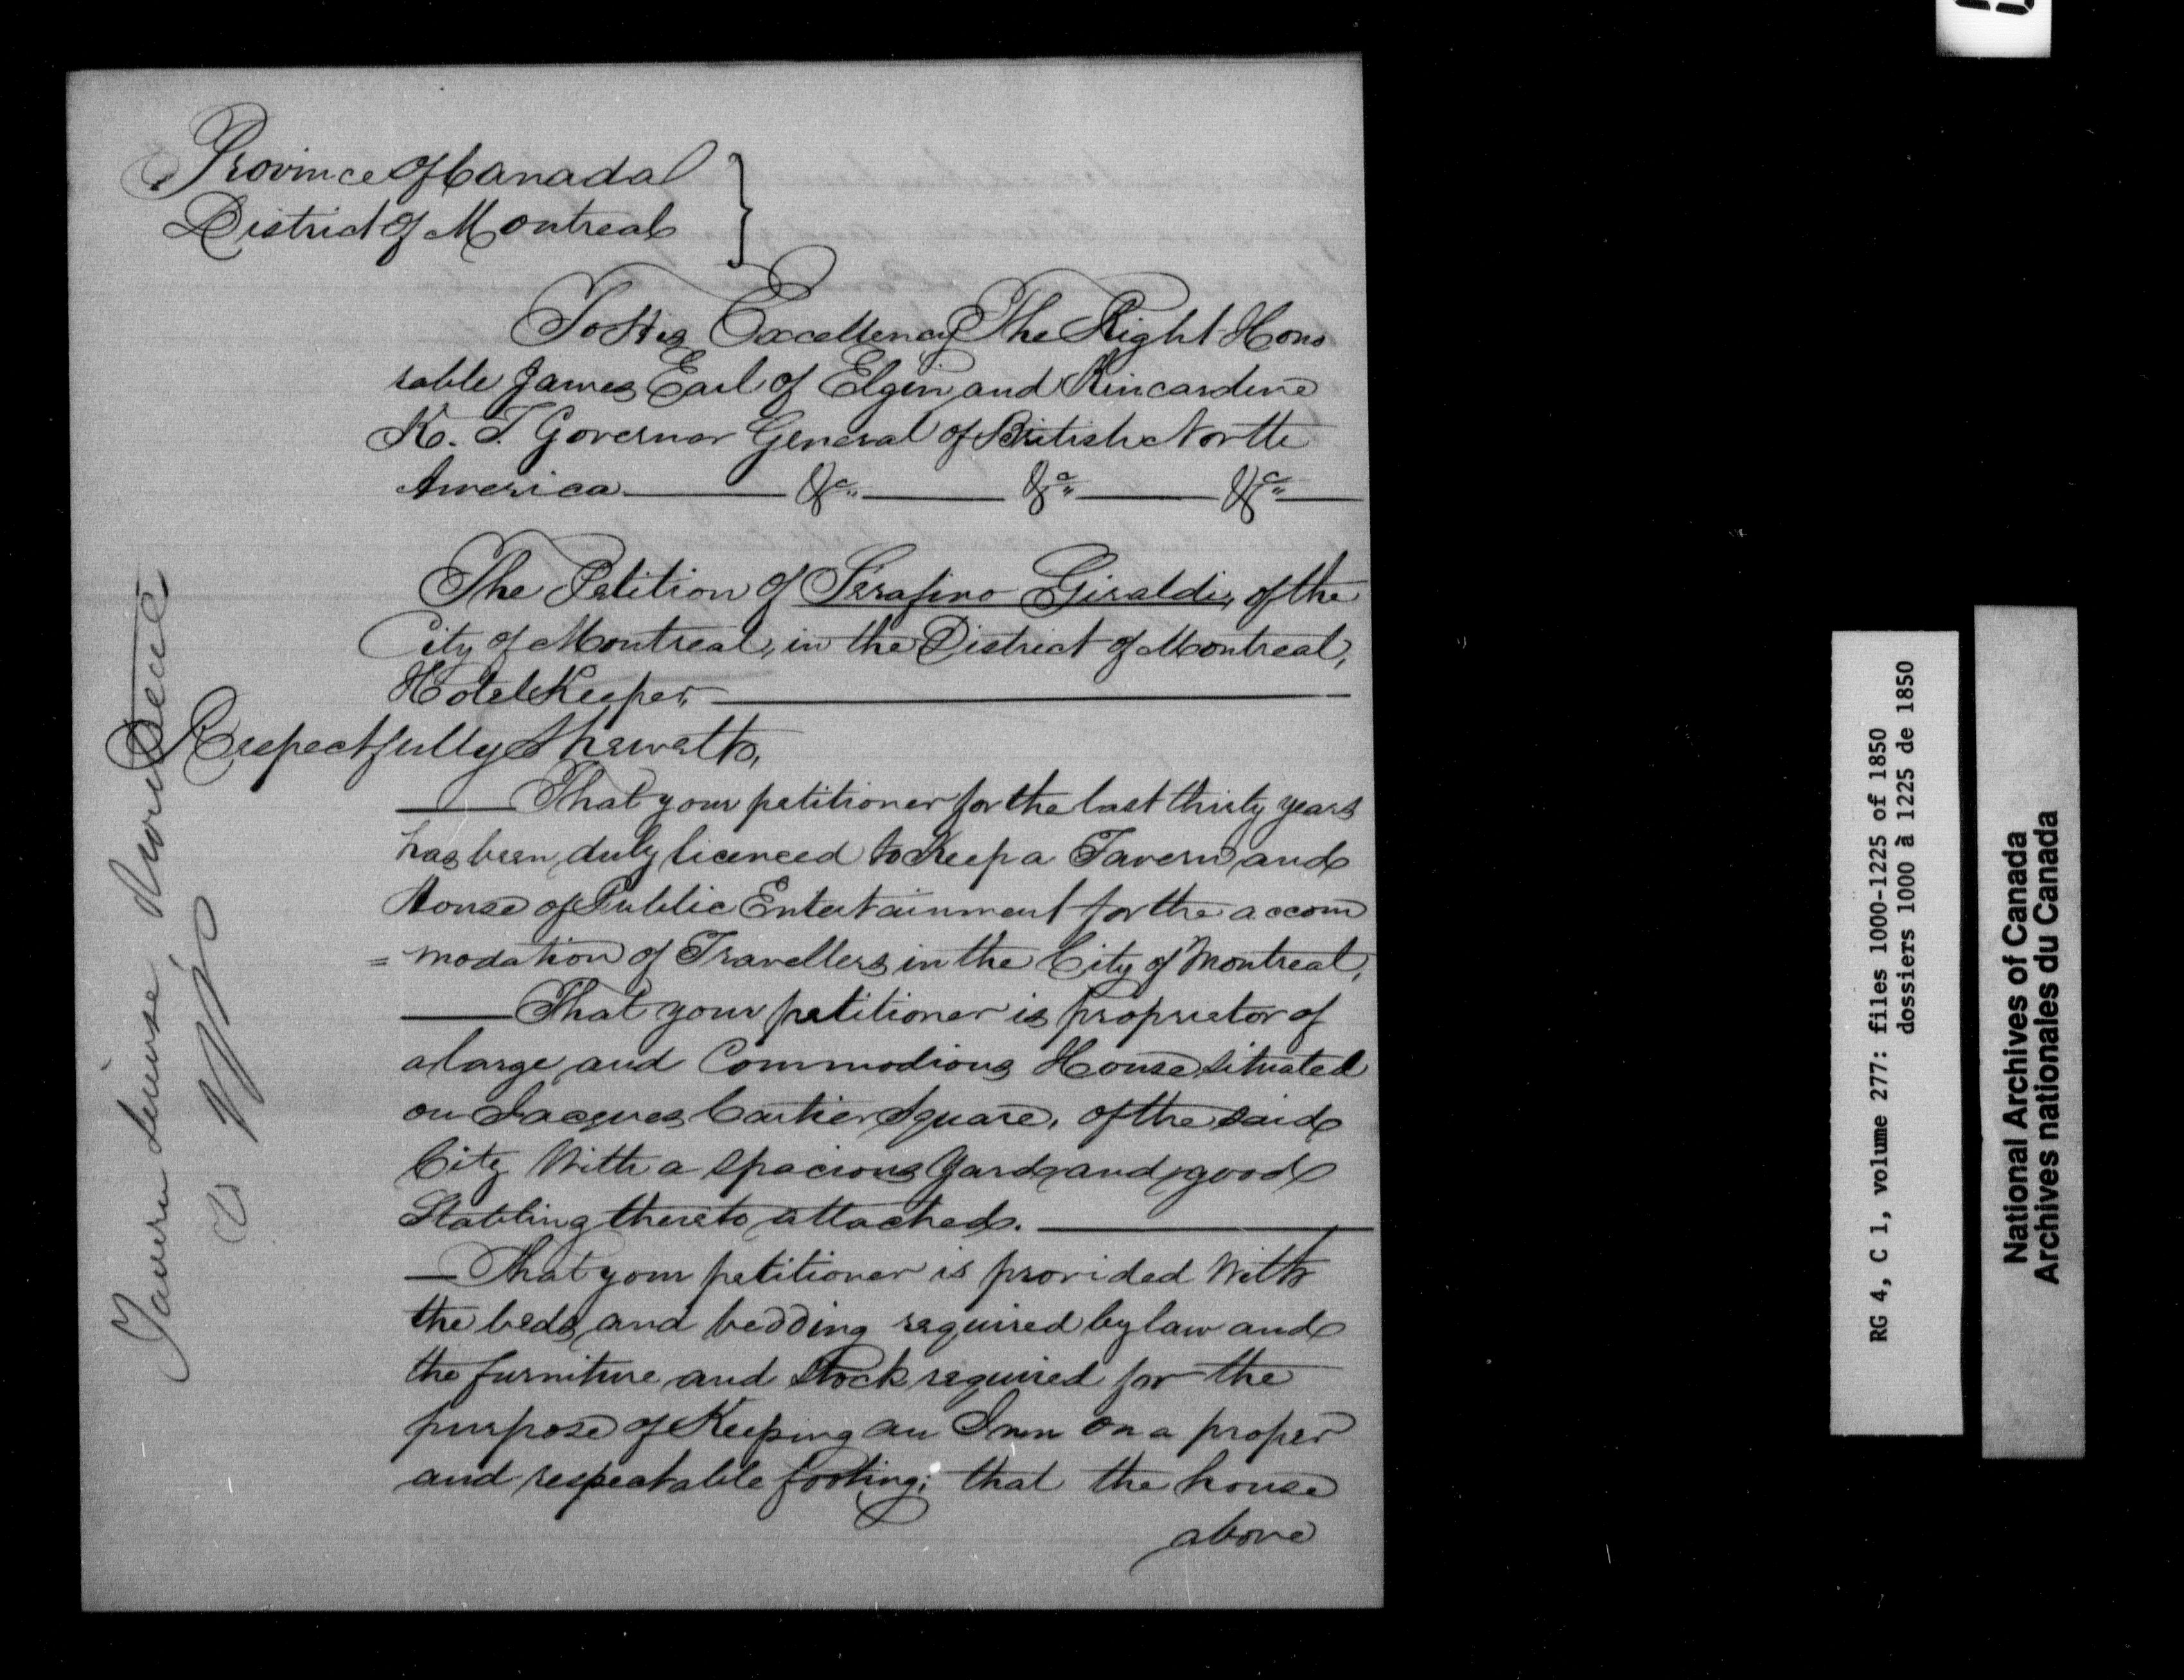 Province of Canada
District of Montreal
To His Excellency The Right Hono
rable James Earl of Elgin and Kincardine
K. T. Governor General of British North
America &c. &c. &c.
The Petition of Serafino Giraldi, of the
City of Montreal, in the District of Montreal,
Hotel Keeper,
Respectfully Sheweth,
That your petitioner for the last thirty years
has been duly licenced to Keep a Tavern and
House of Public Entertainment for the accom
= modation of Travellers in the City of Montreal,
That your petitioner is proprietor of
a large and Commodious House situated
on Jacques Cartier Square, of the said
City With a spacious Yard and good
Stabling thereto attached.
That your petitioner is provided With
the beds and bedding required by law and
the furniture and Stock required for the
purpose of Keeping an Inn on a proper
and respectable footing; that the house
above
Tavern License
RG 4, C 1, volume 277: files 1000-1225 of 1850
dossiers 1000 à 1225 de 1850
National Archives of Canada
Archives nationales du Canada